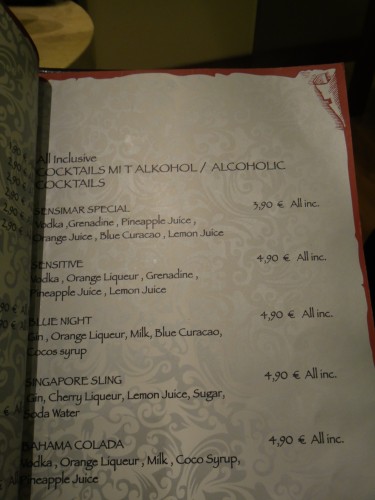 All Inclusive
COCKTAILS MIT ALKOHOL / ALCOHOLIC
COCKTAILS
SENSIMAR SPECIAL 3,90 € All inc.
Vodka ,Grenadine , Pineapple Juice ,
Orange Juice , Blue Curacao , Lemon Juice
SENSITIVE 4,90 € All inc.
Vodka , Orange Liqueur , Grenadine ,
Pineapple Juice , Lemon Juice
BLUE NIGHT 4,90 € All inc.
Gin , Orange Liqueur, Milk, Blue Curacao,
Cocos syrup
SINGAPORE SLING 4,90 € All inc.
Gin, Cherry Liqueur, Lemon Juice, Sugar,
Soda Water
BAHAMA COLADA 4,90 € All inc.
Vodka , Orange Liqueur , Milk , Coco Syrup,
Pineapple Juice